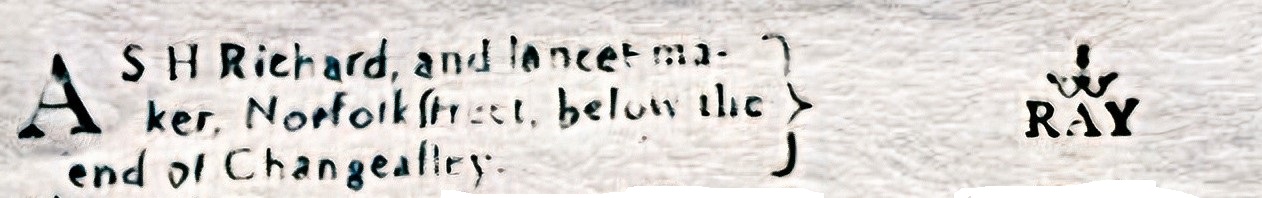 ASH Richard, and lancet ma-
ker, Norfolkstreet, below the
end of Changealley.
RAY